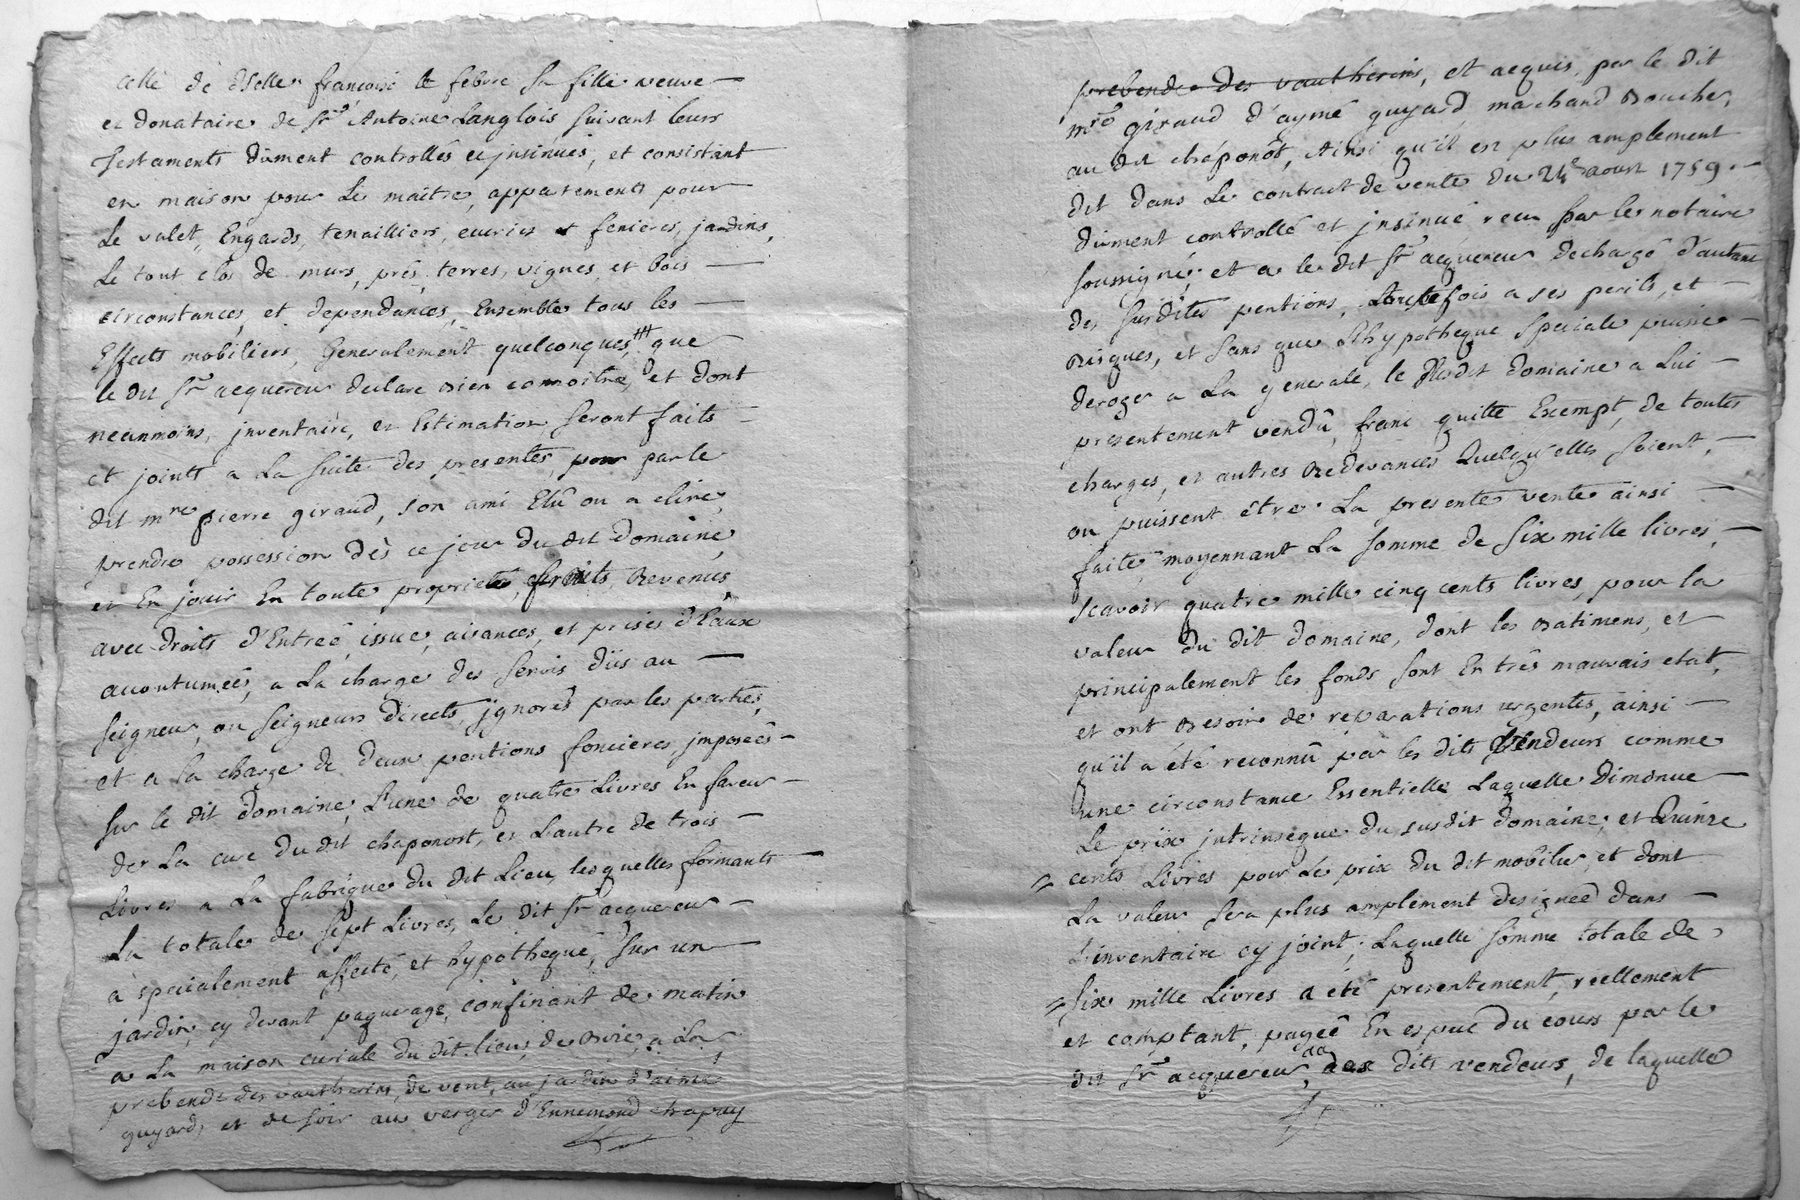 celle de dlle françoise le febvre sa fille veuve
et donataire de Sr Antoine Langlois suivant leurs
testaments dûment controllés et jnsinués, et consistant
en maison pour le maître, appartements pour
le valet, Engards, tenailliers, ecuries et fenieres, jardins,
le tout clos de murs, prés, terres, vignes, et bois
circonstances, et dependances, Ensemble tous les
Effects mobiliers, Generalement quelconques, que
le dit Sr acquereur declare bien connoitre, et dont
neanmoins, jnventaire, et Estimation seront faits
et joints a la suite des presentes, par le
dit mre pierre giraud, son ami Elû ou a elire,
prendre possession dès ce jour du dit Domaine,
et En jouir En toute proprieté, fruits, Revenus,
avec droits d'Entreé, issue, aisances, et prises d'Eaux
acoutumeés, a la charge des servis dûs au
seigneur, ou seigneurs directs, jgnorés par les parties,
et a la charge de deux pentions foncieres, jmposeés
sur le dit Domaine, L'une de quatre Livres En faveur
de la cure du dit chaponost, et L'autre de trois
Livres a la fabrique du dit Lieu, lesquelles formants
la totale de sept Livres, Le dit Sr acquereur
a specialement affecté, et hypothequé, sur un
jardin, cy devant paquerage, confinant de matin
a la maison curiale du dit lieu, de bize, a la
prebende des vautherins, de vent, au jardin d'aimé
guyard, et de soir au verger d'Ennemond chapuy
prebende des vautherins, et acquis, par le dit
mre giraud d'aymé guyard, marchand Boucher,
au dit chaponôst, Ainsi qu'il est plus amplement
dit dans le contract de vente du 24e aoust 1759.
dûment controllé et jnsinué reçu par le notaire
soussigné; et a le dit Sr acquereur dechargé d'autant
des susdites pentions, toutefois a ses perils, et
Risques, et sans que l'hypotheque speciale puisse
deroger a la generale, le susdit domaine a lui
presentement vendû, franc quitte Exempt, de toutes
charges, et autres Redevances Quelqu'elles soient,
ou puissent être. La presente vente ainsi
faite, moyennant la somme de six mille livres,
scavoir quatre mille cinq cents livres, pour la
valeur du dit domaine, dont les Batimens, et
principalement les fonds sont En très mauvais etat,
et ont Besoin de réparations urgentes, ainsi
qu'il a été reconnû par les dits Vendeurs comme
une circonstance Essentielle Laquelle diminue
Le prix jntrinseque du susdit domaine, et Quinze
cents Livres pour Le prix du dit mobilier, et dont
La valeur sera plus amplement designeé dans
l'inventaire cy joint; Laquelle somme totale de
six mille Livres a été presentement, reellement
et comptant, payeé En espece du cours par le
dit Sr acquereur, aux dits vendeurs, de laquelle